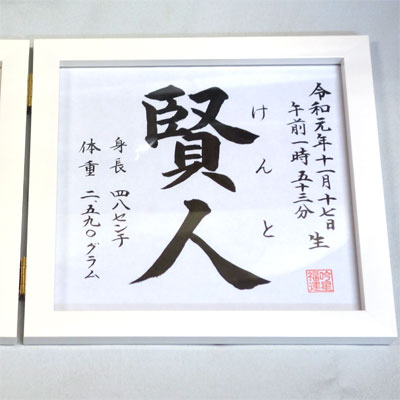 令和元年十一月十七日
午前一時五十三分 生
けんと
賢人
身長 四八センチ
体重 二、五九〇グラム